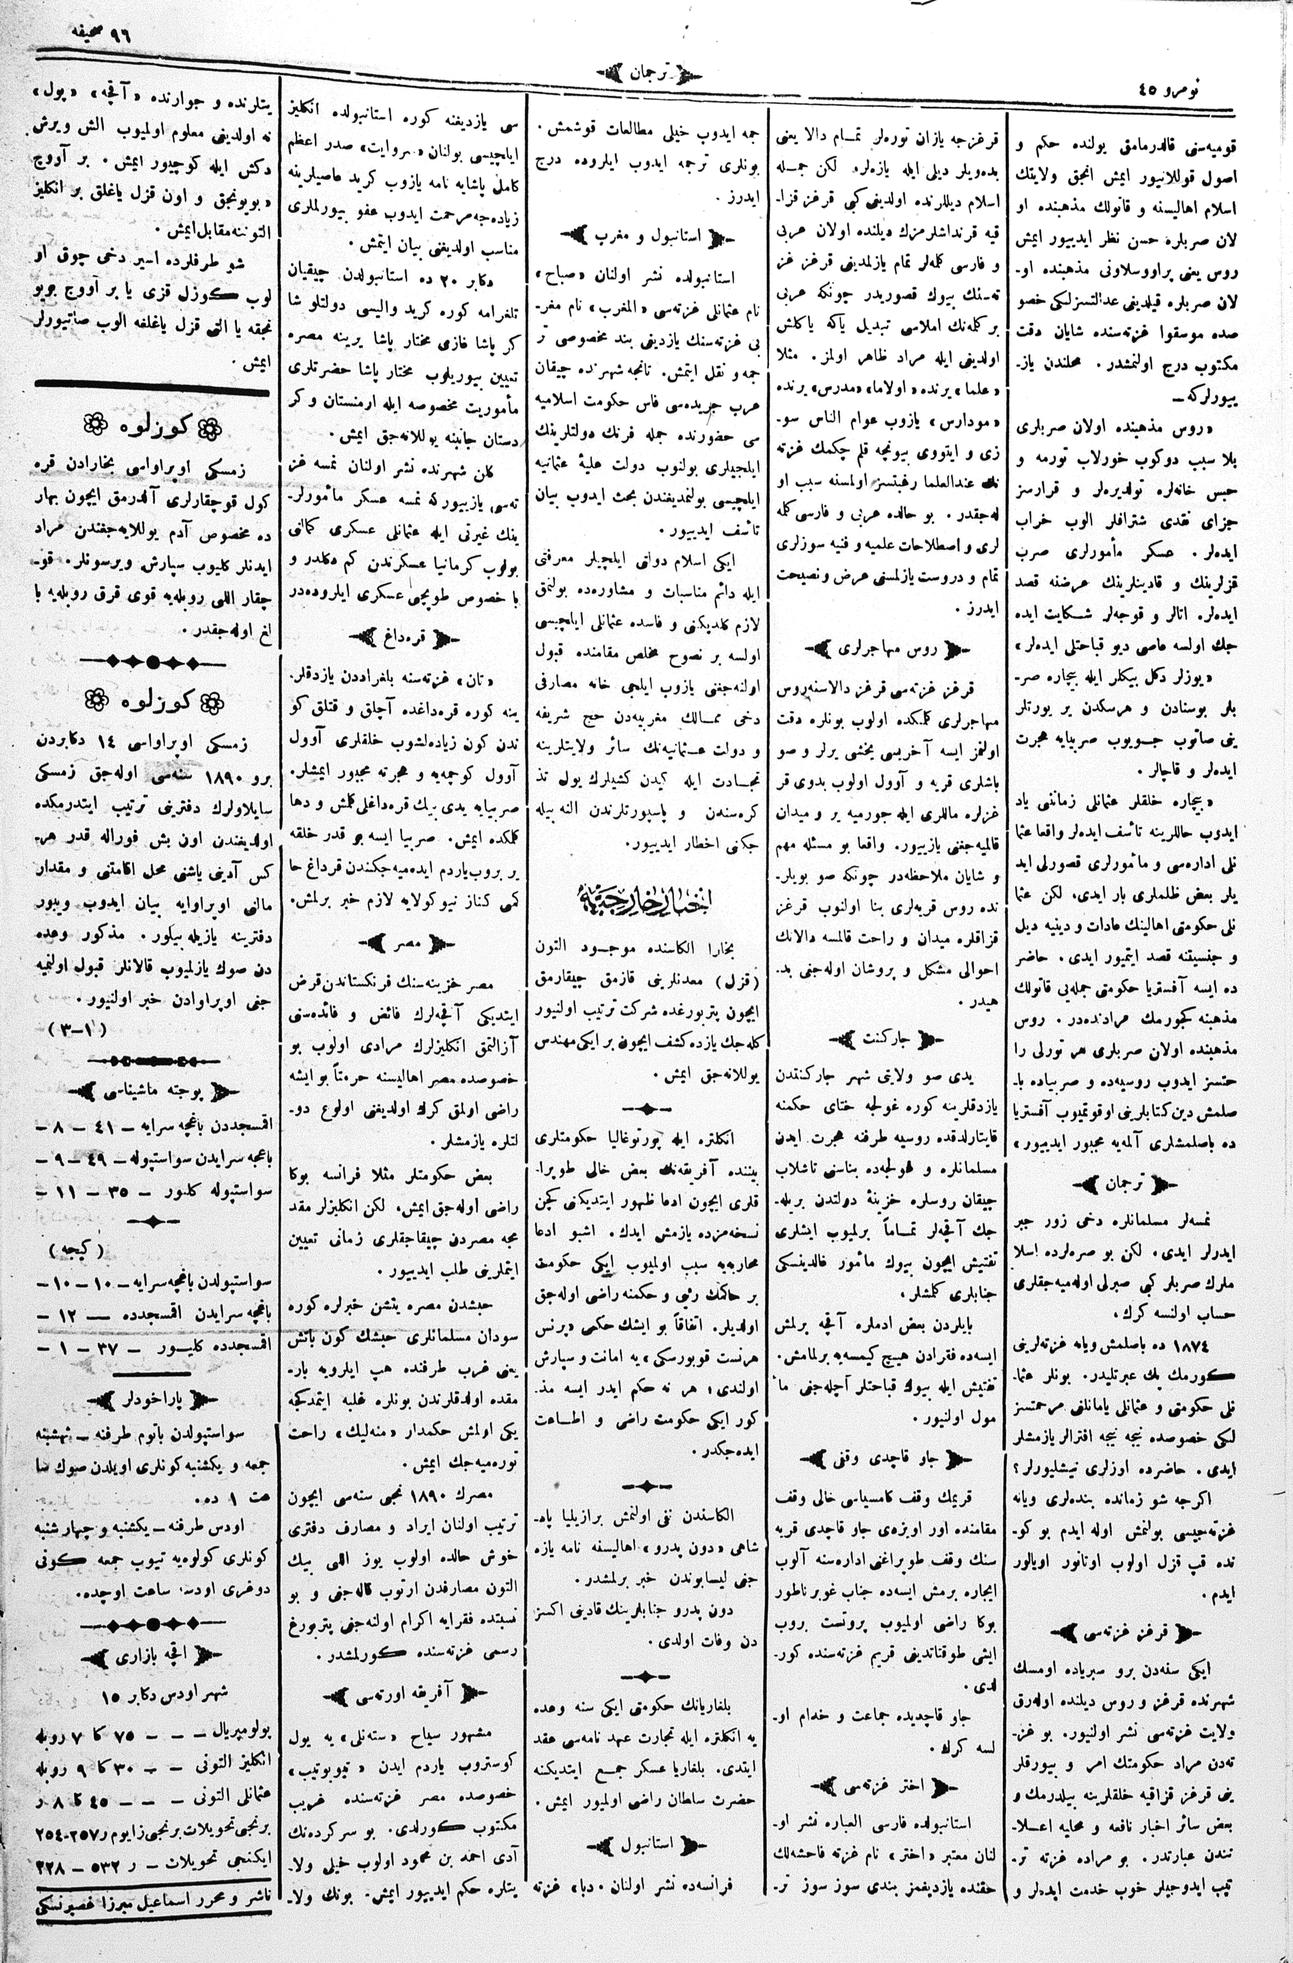 نومرو ٤٥
ترجمان
٩٦ صحیفه
قومیه‌سنی قالدرمامق یولنده حکم و
اصول قوللانیور ایمش انجق ولایتك
اسلام اهالیسنه و قاتولك مذهبنده او
لان صربلره حسن نظر ایدییور ایمش
روس یعنی پراووسلاونی مذهبنده او-
لان صربلره قیلدیغی عدالتسزلکی خصو
صده موسقوا غزته‌سنده شایان دقت
مکتوب درج اولنمشدر. محلندن یاز-
ییورلرکه —
«روس مذهبنده اولان صربلری
بلا سبب دوکوب خورلاب تورمه و
حبس خانه‌لره تولدیره‌لر و قرارسز
جزای نقدی شترافلر الوب خراب
ایده‌لر. عسکر مأمورلری صرب
قزلرینك و قادینلرینك عرضنه قصد
ایده‌لر. اتالر و قوجه‌لر شکایت ایده
جك اولسه عاصی دیو قباحتلی ایده‌لر»
«یوزلر دکل بیکلر ایله بیچاره صر-
بلر بوسنادن و هرسکدن یر یورتلر
ینی صاتوب جویوب صربیایه هجرت
ایده‌لر و قاچالر.
«بیچاره خلقلر عثمانلی زمانی یاد
ایدوب حاللرینه تأسف ایده‌لر واقعا عثما
نلی اداره‌سی و مأمورلری قصورلی اید
یلر بعض ظلملری بار ایدی. لکن عثما
نلی حکومتی اهالینك عادات و دینیه دیل
و جنسیتنه قصد ایتمیور ایدی. حاضر
ده ایسه آفستریا حکومتی جمله‌یی قاتولك
مذهبنه کچورمك مرادنده‌در. روس
مذهبنده اولان صربلری هر تورلی را
حتسز ایدوب روسیه‌ده و صربیاده با-
صلمش دین کتابلرینی اوقوتمیوب آفستریا
ده باصلمشلری آلمه‌یه مجبور ایدییور»
ترجمان
نمسه‌لر مسلمانلره دخی زور جبر
ایدرلر ایدی. لکن بو صره‌لرده اسلا
ملرك صربلر کبی صبرلی اوله‌میه‌جقلری
حساب اولنسه کرك.
١٨٧٤ ده باصلمش ویانه غزته‌لرینی
کورمك پك عبرتلیدر. بونلر عثما-
نلی حکومتی و عثمانلی یامانلغی مرحمتسز
لکی خصوصده نیجه نیجه افترالر یازمشلر
ایدی. حاضرده اوزلری نیشلیورلر؟
اکرچه شو زمانده بنده‌لری ویانه
غزته‌جیسی بولنمش اوله ایدم بو کو-
نده قپ قزل اولوب اوتانور اویالور
ایدم.
قرغز غزته‌سی
ایکی سنه‌دن برو سبریاده اومسك
شهرنده قرغز و روس دیلنده اوله‌رق
ولایت غزته‌سی نشر اولنیور. بو غز-
ته‌دن مراد حکومتك امر و بیورقلر
ینی قرغز قزاقیه خلقلرینه بیلدرمك و
بعض سائر اخبار نافعه و محلیه اعلا-
ندن عبارتدر. بو مراده غزته تر-
تیب ایدوجیلر خوب خدمت ایده‌لر و
قرغزجه یازان توره‌لر تمام دالا یعنی
بده‌ویلر دیلی ایله یازه‌لر. لکن جمله
اسلام دیللرنده اولدیغی کبی قرغز قزا-
قیه قرنداشلرمزك دیلنده اولان عربی
و فارسی کله‌لر تمام یازلمدیغی قرغز غز
ته‌سنك بیوك قصوریدر چونکه عربی
بر کله‌نك املاسی تبدیل یاکه یاکلش
اولدیغی ایله مراد ظاهر اولمز. مثلا
«علما» یرنده «اولاما» «مدرس» یرنده
«مودارس» یازوب عوام الناس سو-
زی و ایتووی بیونجه قلم چکمك غزته
نك عندالعلما رغبتسز اولمسنه سبب او
له‌جقدر. بو حالده عربی و فارسی کله
لری و اصطلاحات علمیه و فنیه سوزلری
تمام و دروست یازلمسنی عرض و نصیحت
ایدرز.
روس مهاجرلری
قرغز غزته‌سی قرغز دالاسنه روس
مهاجرلری کلمکده اولوب بونلره دقت
اولنمز ایسه آخریسی یخشی یرلر و صو
باشلری قریه و آوول اولوب بدوی قر
غزلره ماللری ایله جورمیه یر و میدان
قالمیه‌جغنی یازییور. واقعا بو مسئله مهم
و شایان ملاحظه‌در چونکه صو بویلر-
نده روس قریه‌لری بنا اولنوب قرغز
قزاقلره میدان و راحت قالمسه دالانك
احوالی مشکل و پروشان اوله‌جنی بد-
هیدر.
جارکنت
یدی صو ولایتی شهر جارکنتدن
یازدقلرینه کوره غولجه ختای حکمنه
قایتارلدقده روسیه طرفنه هجرت ایدن
مسلمانلره و غولجه‌ده بناسنی تاشلاب
چیقان روسلره خزینهٔ دولتدن بریله-
جك آقچه‌لر تماماً برلمیوب ایشلری
تفتیش ایچون بیوك مأمور فالدینسکی
جنابلری کلمشلر.
بایلردن بعض ادملره آقچه برلمش
ایسه‌ده فقرادن هیچ کیمسه‌یه برلمامش.
تفتیش ایله بیوك قباحتلر آچله‌جنی مأ
مول اولنیور.
جاو قاچدی وقفی
قریمك وقف کامسیاسی خالی وقف
مقامنده اور اویزه‌ی جاو قاچدی قریه
سنك وقف طوپراغنی اداره‌سنه آلوب
ایجاره برمش ایسه‌ده جناب غوبرناطور
بوکا راضی اولمیوب پروتست بروب
ایشی طوقتاتدیغی قریم غزته‌سنده کور-
لدی.
جاو قاچدیده جماعت و خدام او-
لسه کرك.
اختر غزته‌سی
استانبولده فارسی العباره نشر او-
لنان معتبر «اختر» نام غزته فاحشه‌لك
حقنده یازدیغمز بندی سوز سوز تر-
جمه ایدوب خیلی مطالعات قوشمش.
بونلری ترجمه ایدوب ایلروده درج
ایدرز.
استانبول و مغرب
استانبولده نشر اولنان «صباح»
نام عثمانلی غزته‌سی «المغرب» نام مغر-
بی غزته‌سنك یازدیغی بند مخصوصی تر
جمه و نقل ایتمش. تانجه شهرنده چیقان
عرب جریده‌سی فاس حکومت اسلامیه
سی حضورنده جمله فرنك دولتلرینك
ایلجیلری بولنوب دولت علیهٔ عثمانیه
ایلچیسی بولنمدیغندن بحث ایدوب بیان
تأسف ایدییور.
ایکی اسلام دولتی ایلچیلر معرفتی
ایله دائم مناسبات و مشاوره‌ده بولنمق
لازم کلدیکنی و فاسده عثمانلی ایلچیسی
اولسه بر نصوح مخلص مقامنده قبول
اولنه‌جغنی یازوب ایلجی خانه مصارفی
دخی ممالك مغربیه‌دن حج شریفه
و دولت عثمانیه‌نك سائر ولایتلرینه
تجارت ایله کیدن کشیلرك یول تذ
کره‌سندن و پاسپورتلرندن النه بیله
جکنی اخطار ایدییور.
اخبار خارجیه
بخارا الکاسنده موجود التون
(قزل) معدنلرینی قازمق چیقارمق
ایچون پتربورغده شرکت ترتیب اولنیور
کله‌جك یازده کشف ایچون بر ایکی مهندس
یوللانه‌جق ایمش.
انکلتره ایله پورتوغالیا حکومتلری
بیننده آفریقه‌نك بعض خالی طوپرا-
قلری ایچون ادعا ظهور ایتدیکنی کچن
نسخه‌مزده یازمش ایدك. اشبو ادعا
محاربه‌یه سبب اولمیوب ایکی حکومت
بر حاکمك رئیی و حکمنه راضی اوله‌جق
اولدیلر. اتفاقاً بو ایشك حکمی «پرنس
هرنست قوبورسکی» یه امانت و سپارش
اولندی؛ هر نه حکم ایدر ایسه مذ-
کور ایکی حکومت راضی و اطاعت
ایده‌جکدر.
الکاسندن نفی اولنمش برازیلیا پاد-
شاهی «دون پدرو» اهالیسنه نامه یازه
جنی لیسابوندن خبر برلمشدر.
دون پدرو جنابلرینك قادینی اکسز
دن وفات اولدی.
بلغاریانك حکومتی ایکی سنه وعده
یه انکلتره ایله تجارت عهد نامه‌سی عقد
ایتدی. بلغاریا عسکر جمع ایتدیکنه
حضرت سلطان راضی اولمیور ایمش.
استانبول
فرانسه‌ده نشر اولنان «دبا» غزته
سی یازدیغنه کوره استانبولده انکلیز
ایلچیسی بولنان «سروایت» صدر اعظم
کامل پاشایه نامه یازوب کرید عاصیلرینه
زیاده‌جه مرحمت ایدوب عفو بیورلملری
مناسب اولدیغنی بیان ایتمش.
دکابر ٢٠ ده استانبولدن چیقیان
تلغرامه کوره کرید والیسی دولتلو شا
کر پاشا غازی مختار پاشا یرینه مصره
تعیین بیوریلوب مختار پاشا حضرتلری
مأموریت مخصوصه ایله ارمنستان و کر
دستان جانبنه یوللانه‌جق ایمش.
کلن شهرنده نشر اولنان نمسه غز
ته‌سی یازییور که نمسه عسکر مأمورلر-
ینك غیرتی ایله عثمانلی عسکری کمالنی
بولوب کرمانیا عسکرندن کم دکلدر و
با خصوص طوپچی عسکری ایلروده‌در
قره‌داغ
«تان» غزته‌سنه بلغراددن یازدقلر-
ینه کوره قره‌داغده آچلق و قتلق کو
ندن کون زیاده‌لشوب خلقلری آوول
آوول کوچه‌یه و هجرته مجبور ایمشلر.
صربیایه یدی بیك قره‌داغلی کلمش و دها
کلمکده ایمش. صربیا ایسه بو قدر خلقه
یر بروب یاردم ایده‌میه‌جکندن قره‌داغ حا
کمی کناز نیوکولایه لازم خبر برلمش.
مصر
مصر خزینه‌سنك فرنکستاندن قرض
ایتدیکی آقچه‌لرك فائض و فائده‌سنی
آزالتمق انکلیزلرك مرادی اولوب بو
خصوصده مصر اهالیسنه حرمتاً بو ایشه
راضی اولمق کرك اولدیغنی اولوغ دو-
لتلره یازمشلر.
بعض حکومتلر مثلا فرانسه بوکا
راضی اوله‌جق ایمش. لکن انکلیزلر مقد
مجه مصردن چیقاجقلری زمانی تعیین
ایتملرینی طلب ایدییور.
حبشدن مصره یتشن خبرلره کوره
سودان مسلمانلری حبشك کون باتش
یعنی غرب طرفنده هپ ایلرویه بار-
مقده اولدقلرندن بونلره غلبه ایتمدکچه
یکی اولمش حکمدار «منه‌لیك» راحت
توره‌میه‌جك ایمش.
مصرك ١٨٩٠ نجی سنه‌سی ایچون
ترتیب اولنان ایراد و مصارف دفتری
خوش حالده اولوب یوز اللی بیك
التون مصارفدن ارتوب قاله‌جنی و بو
نسبتده فقرایه اکرام اولنه‌جنی پتربورغ
رسمی غزته‌سنده کورلمشدر.
آفریقه اورته‌سی
مشهور سیاح «ستنلی» یه یول
کوستروب یاردم ایدن «تیوبوتیب»
خصوصده مصر غزته‌سنده غریب
مکتوب کورلدی. بو سرکرده‌نك
آدی احمد بن محمود اولوب خیلی ولا-
یتلره حکم ایدییور ایمش. بونك ولا-
یتلرنده و جوارنده «آقچه» «پول»
نه اولدیغی معلوم اولمیوب الش ویرش
دکش ایله کوچیور ایمش. بر آووج
«بویونجق و اون قزل یاغلق بر انکلیز
التوننه مقابل ایمش.
شو طرفلرده اسیر دخی چوق او
لوب کوزل قزی یا بر آووج جویو
نجقه یا التی قزل یاغلغه الوب صاتیورلر
ایمش.
کوزلوه
زمسکی اوپراواسی بخارادن قره
کول قوچقارلری آلدرمق ایچون بهار
ده مخصوص آدم یوللایه‌جغندن مراد
ایدنلر کلیوب سپارش ویرسونلر. قو-
چقار اللی روبله‌یه قوی قرق روبله‌یه با
لغ اوله‌جقدر.
کوزلوه
زمسکی اوپراواسی ١٤ دکابردن
برو ١٨٩٠ سنه‌سی اوله‌جق زمسکی
سایلاولرك دفترینی ترتیب ایتدرمکده
اولدیغندن اون بش فوراله قدر هر-
کس آدینی یاشنی محل اقامتنی و مقدار
مالنی اوپراوایه بیان ایدوب ویبور
دفترینه یازیله بیلور. مذکور وعده
دن صوك یازلمیوب قالانلر قبول اولنمیه
جنی اوپراوادن خبر اولنیور.
(١—٣)
پوچته ماشیناسی
اقمسجددن باغچه سرایه — ٤١ — ٨ —
باغچه سرایدن سواستپوله — ٤٩ — ٩ —
سواستپوله کلنور — ٣٥ — ١١ —
(کیجه)
سواستپولدن باغچه سرایه — ١٠ — ١٠ —
باغچه سرایدن اقمسجدده — ١٢ —
اقمسجدده کلیور — ٣٧ — ١ —
پاراخودلر
سواستپولدن باتوم طرفنه — پنجشنبه
جمعه و یکشنبه کونلری اویلدن صوك سا
عت ١ ده.
اودس طرفنه — یکشنبه و چهارشنبه
کونلری کوزلوه‌یه تیوب جمعه کونی
دوغری اودسه ساعت اوچده.
اقچه بازاری
شهر اودس دکابر ١٥
پولومپریال — — — ٧٥ کا ٧ روبله
انکلیز التونی — — ٣٠ کا ٩ روبله
عثمانلی التونی — — — ٤٥ کا ٨ ر
برنجی تحویلات برنجی زایوم ر ٢٥٧-٢٥٤
ایکنجی تحویلات — ر ٥٣٢ — ٢٢٨
ناشر و محرر اسماعیل میرزا غصپرنسکی